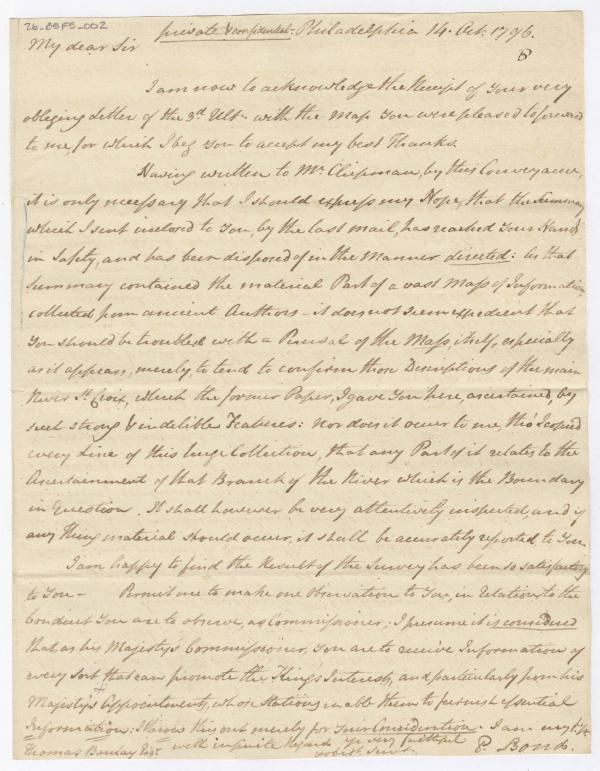 26-BSFS-002
private & confidential- Philadelphia 14. Oct. 1796.
My dear Sir
I am now to acknowledge the Receipt of Your very
obliging Letter of the 3rd Ulto. with the Map You were pleased to forward
to me, for which I beg You to accept my best Thanks.
Having written to Mr. Chipman, by this Conveyance,
it is only necessary that I should express my Hope, that the Summary
which I sent inclosed to You, by the last mail, has reached Your Hands
in Safety, and has been disposed of in the Manner directed: as that
Summary contained the material Part of a vast Mass of Information,
collected from ancient Authors - it does not seem expedient that
You should be troubled with a Perusal of the Mass, itself, especially
as it appears, merely, to tend to confirm those Descriptions of the main
River St. Croix, which the former Paper, I gave You here, ascertained, by
such strong & indelible Features: nor does it occur to me, tho' I copied
every Line of this huge Collection, that any Part of it relates to the
Ascertainment of that Branch of the River which is the Boundary
in Question. It shall however be very attentively inspected, and if
any thing material should occur, it shall be accurately reported to You.
I am happy to find the Result of the Survey has been so satisfactory
to You - Permit me to make one Observation to You, in relation to the
Conduct You are to observe, as Commissioner; I presume it is conceived
that as his Majesty's Commissioner, You are to receive Information of
every sort that can promote the King's Interest, and particularly from his
Majesty's Appointments, whose Stations enable them to furnish essential
Information. I throw this out merely for Your Consideration. I am my dr. Sir
Thomas Barclay Esqr. with infinite Regard yr. very faithful
obedt. Servt. P. Bond.